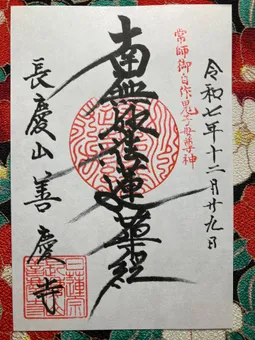 令和七年十二月廿九日
常師御自作鬼子母尊神
南無妙法蓮華経
長慶山善慶寺